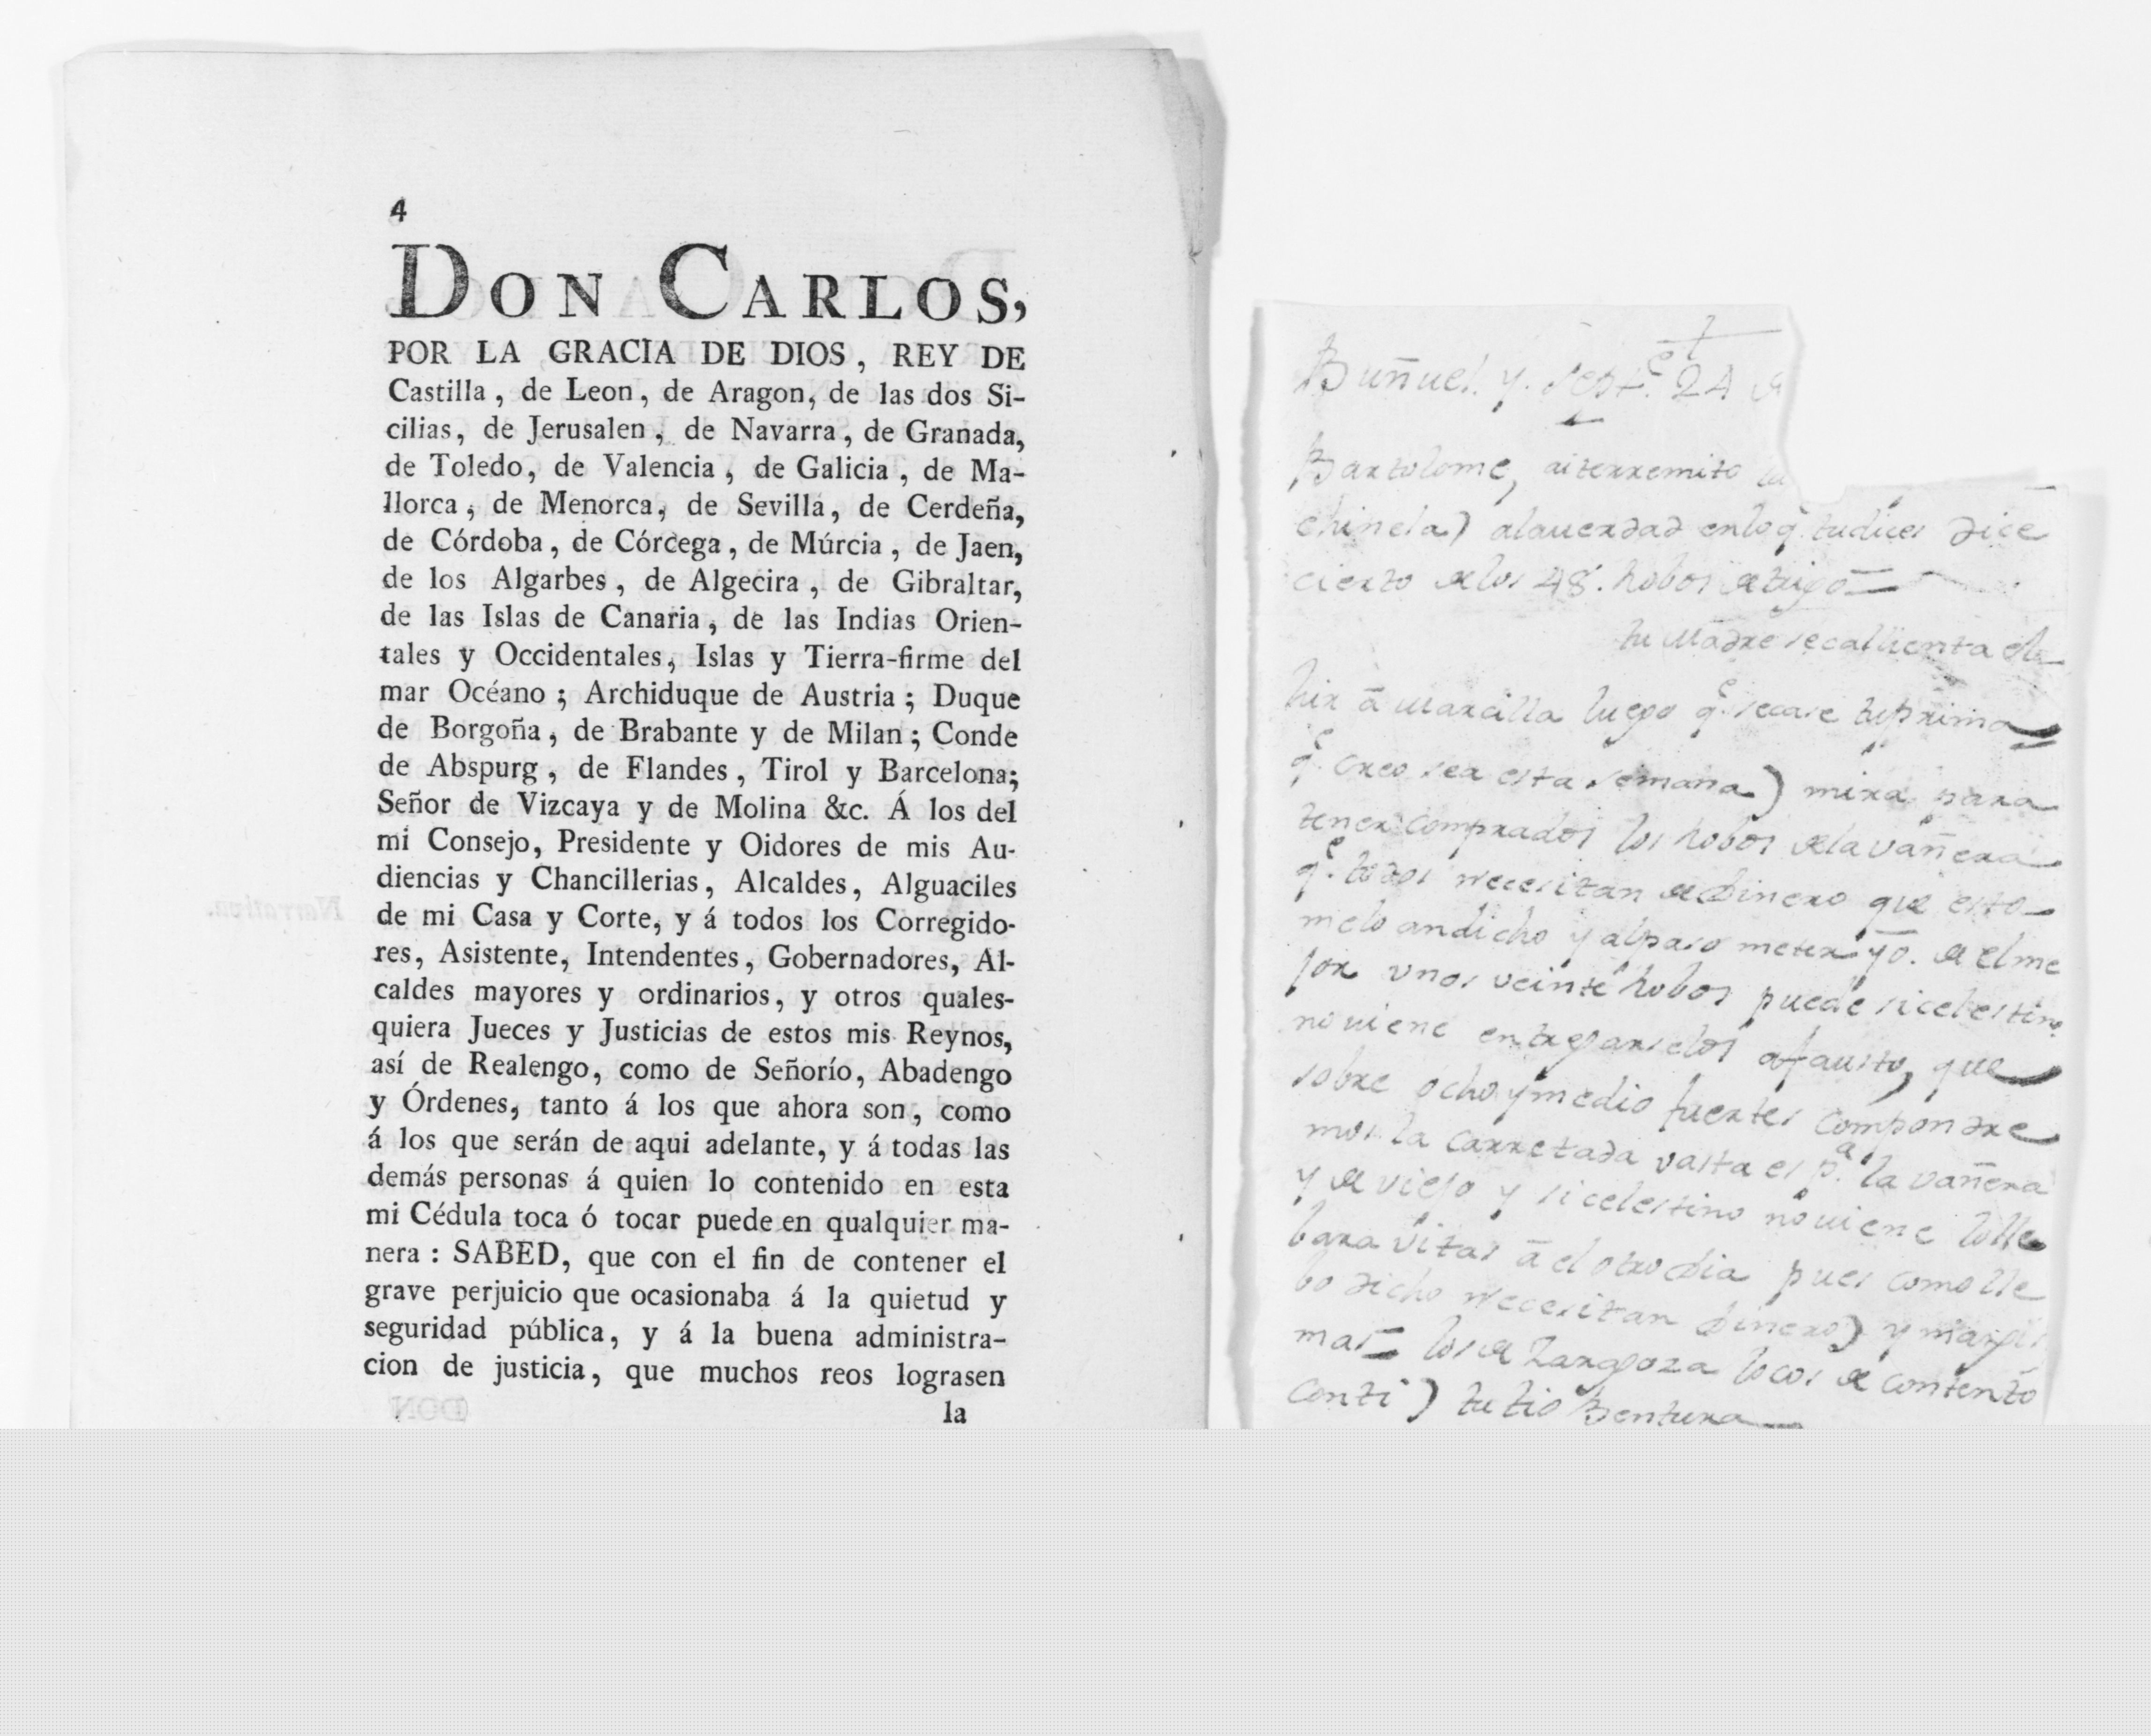 4
DON CARLOS,
POR LA GRACIA DE DIOS, REY DE
Castilla, de Leon, de Aragon, de las dos Si-
cilias, de Jerusalen, de Navarra, de Granada,
de Toledo, de Valencia, de Galicia, de Ma-
llorca, de Menorca, de Sevilla, de Cerdeña,
de Córdoba, de Córcega, de Múrcia, de Jaen,
de los Algarbes, de Algecira, de Gibraltar,
de las Islas de Canaria, de las Indias Orien-
tales y Occidentales, Islas y Tierra-firme del
mar Océano; Archiduque de Austria; Duque
de Borgoña, de Brabante y de Milan; Conde
de Abspurg, de Flandes, Tirol y Barcelona;
Señor de Vizcaya y de Molina &c. Á los del
mi Consejo, Presidente y Oidores de mis Au-
diencias y Chancillerias, Alcaldes, Alguaciles
de mi Casa y Corte, y á todos los Corregido-
res, Asistente, Intendentes, Gobernadores, Al-
caldes mayores y ordinarios, y otros quales-
quiera Jueces y Justicias de estos mis Reynos,
así de Realengo, como de Señorío, Abadengo
y Órdenes, tanto á los que ahora son, como
á los que serán de aqui adelante, y á todas las
demás personas á quien lo contenido en esta
mi Cédula toca ó tocar puede en qualquier ma-
nera: SABED, que con el fin de contener el
grave perjuicio que ocasionaba á la quietud y
seguridad pública, y á la buena administra-
cion de justicia, que muchos reos lograsen
la
Buñuel. y. Septe. 24 de
Bartolome, aiterremito la
chinela) alauerdad enlo qe. tudices dice
cierto de los 48. hobos de trigo
tu Madre se callienta de
hir á Marcilla luego qe. secase tuprima
qe. creo sea esta semana) mira para
tener comprados los hobos dela vañera
qe. todos necesitan de dinero que esto
melo andicho y alpaso meter yo. de elme
jor unos veinte hobos puede sicelestino
no viene entregarselos afausto, que
sobre ocho y medio fuertes compondre
mos la carretada vasta es pa. la vañera
y de viejo y si celestino no uiene lolle
bara Vitas á el otro dia pues como lle
bo dicho necesitan dinero) y
mas los de Zaragoza locos de contento
conti) tu tio Bentura